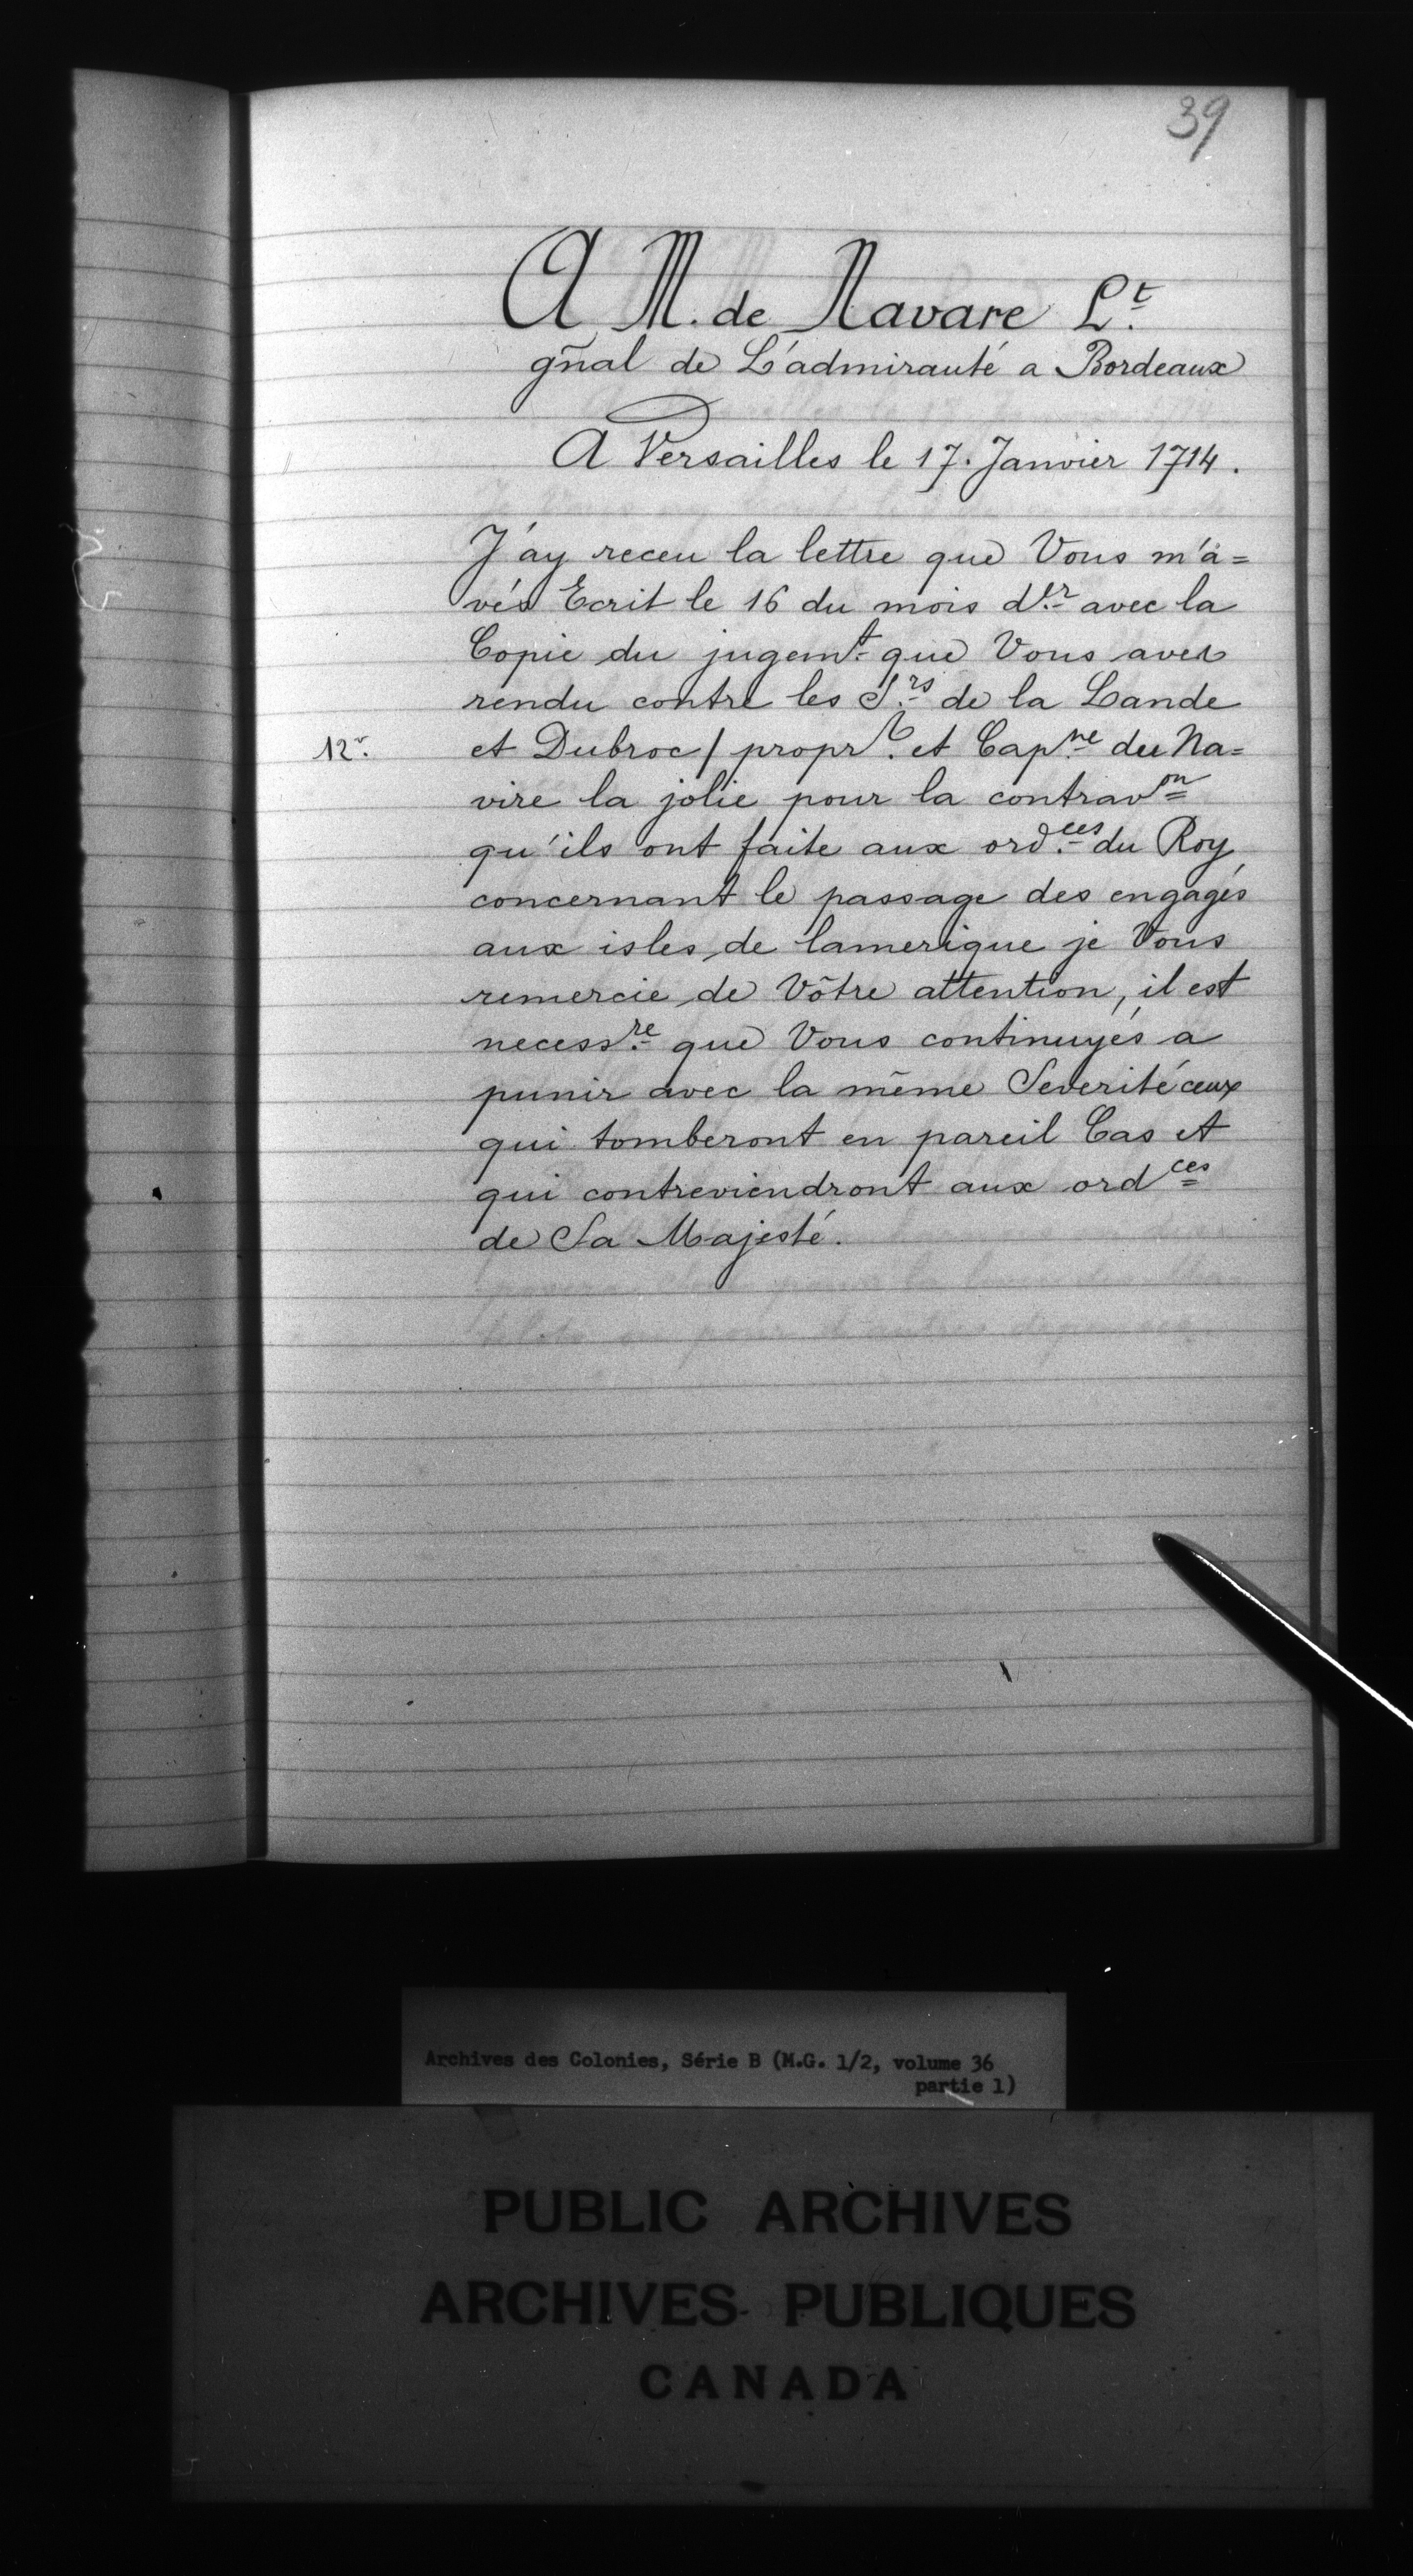 39
A M. de Navare L.t
gñal de L'admirauté a Bordeaux
A Versailles le 17. Janvier 1714.
J'ay receu la lettre que Vous m'a=
vés Ecrit le 16 du mois d.er avec la
Copie du jugem.t que Vous avez
rendu contre les S.rs de la Lande
12.v et Dubroc / propr.e et Cap.ne du Na=
vire la jolie pour la contrav.on
qu'ils ont faite aux ord.ces du Roy
concernant le passage des engagés
aux isles de lamerique je Vous
remercie de Vôtre attention, il est
necess.re que Vous continuyés a
punir avec la même Severité ceux
qui tomberont en pareil Cas et
qui contreviendront aux ord ces
de Sa Majesté.
Archives des Colonies, Série B (M.G. 1/2, volume 36
partie 1)
PUBLIC ARCHIVES
ARCHIVES PUBLIQUES
CANADA